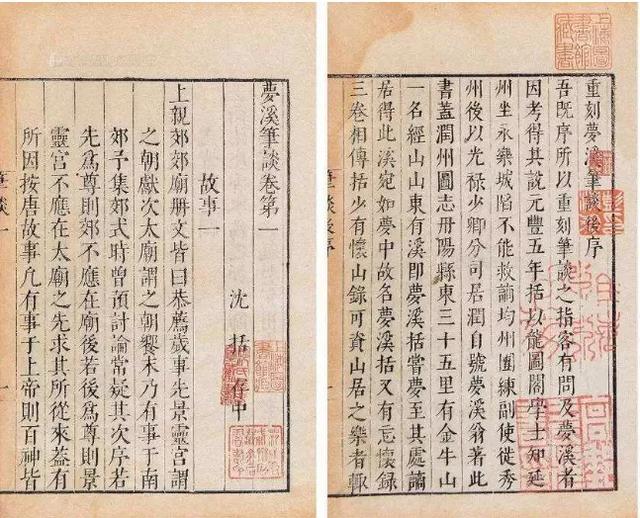 重刻夢溪筆談後序
吾既序所以重刻筆談之指客有問及夢溪者
因考得其說元豐五年括以龍圖閣學士知延
州坐永樂城陷不能救謫均州團練副使徙秀
州後以光祿少卿分司居潤自號夢溪翁著此
書蓋潤州圖志丹陽縣東三十五里有金牛山
一名經山山東有溪即夢溪括嘗夢至其處謫
居得此溪宛如夢中故名夢溪括又有忘懷錄
三卷相傳括少有懷山錄可資山居之樂者輙
夢溪筆談卷第一
沈 括 存中
故事一
上親郊郊廟冊文皆曰恭薦歲事先景靈宮謂
之朝獻次太廟謂之朝饗末乃有事于南
郊予集郊式時曾預討論常疑其次序若
先爲尊則郊不應在廟後若後爲尊則景
靈宮不應在太廟之先求其所從來葢有
所因按唐故事凢有事于上帝則百神皆
筆談一
一
上海圖書館藏書